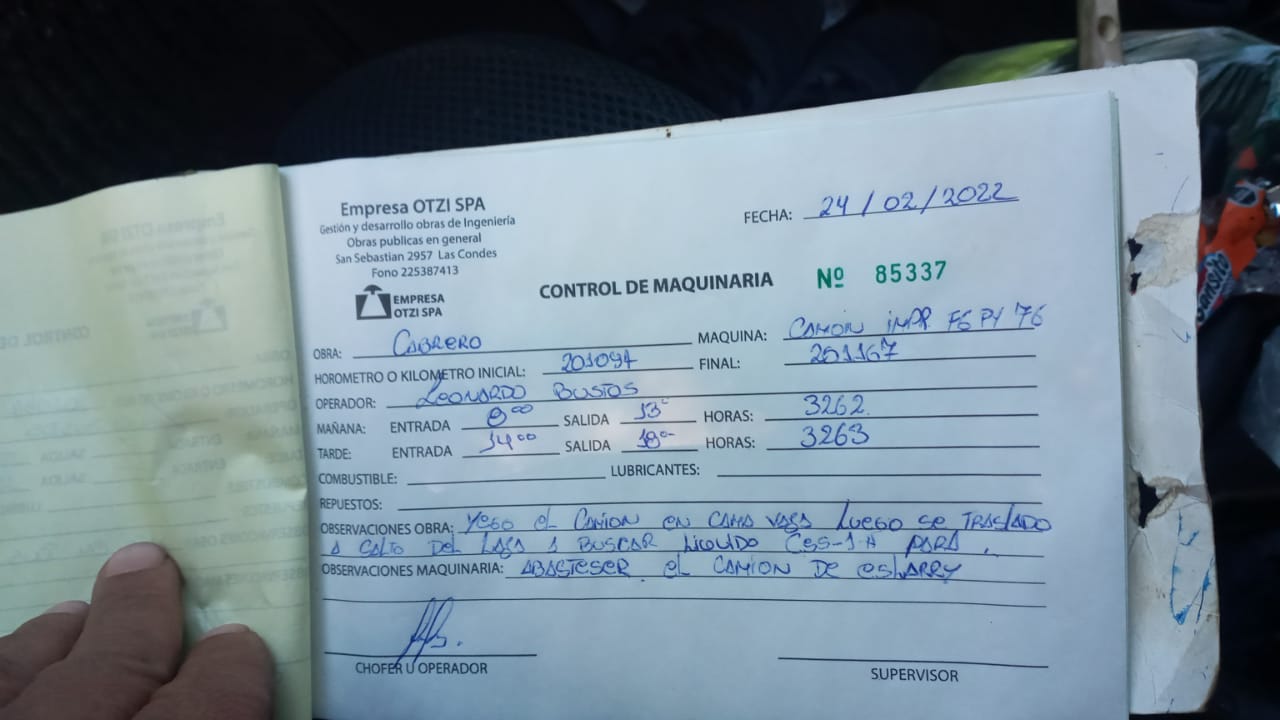 Empresa OTZI SPA
Gestión y desarrollo obras de Ingeniería
Obras publicas en general
San Sebastian 2957 Las Condes
Fono 225387413
EMPRESA
OTZI SPA
FECHA: 24/02/2022
CONTROL DE MAQUINARIA Nº 85337
OBRA: CABRERO MAQUINA: CAMION iMPR FGPY 76
HOROMETRO O KILOMETRO INICIAL: 201097 FINAL: 201167
OPERADOR: LEONARDO BUSTOS
MAÑANA: ENTRADA 8⁰⁰ SALIDA 13⁻ HORAS: 3262
TARDE: ENTRADA 14⁰⁰ SALIDA 18⁰⁻ HORAS: 3263
COMBUSTIBLE: LUBRICANTES:
REPUESTOS:
OBSERVACIONES OBRA: Yego el CAMION en CAMA VAJA Luego se TRASLADO
A SALTO DEL LAJA A BUSCAR Liquido CSS-1-H PARA
OBSERVACIONES MAQUINARIA: ABASTESER el CAMION DE esLARRY
CHOFER U OPERADOR
SUPERVISOR